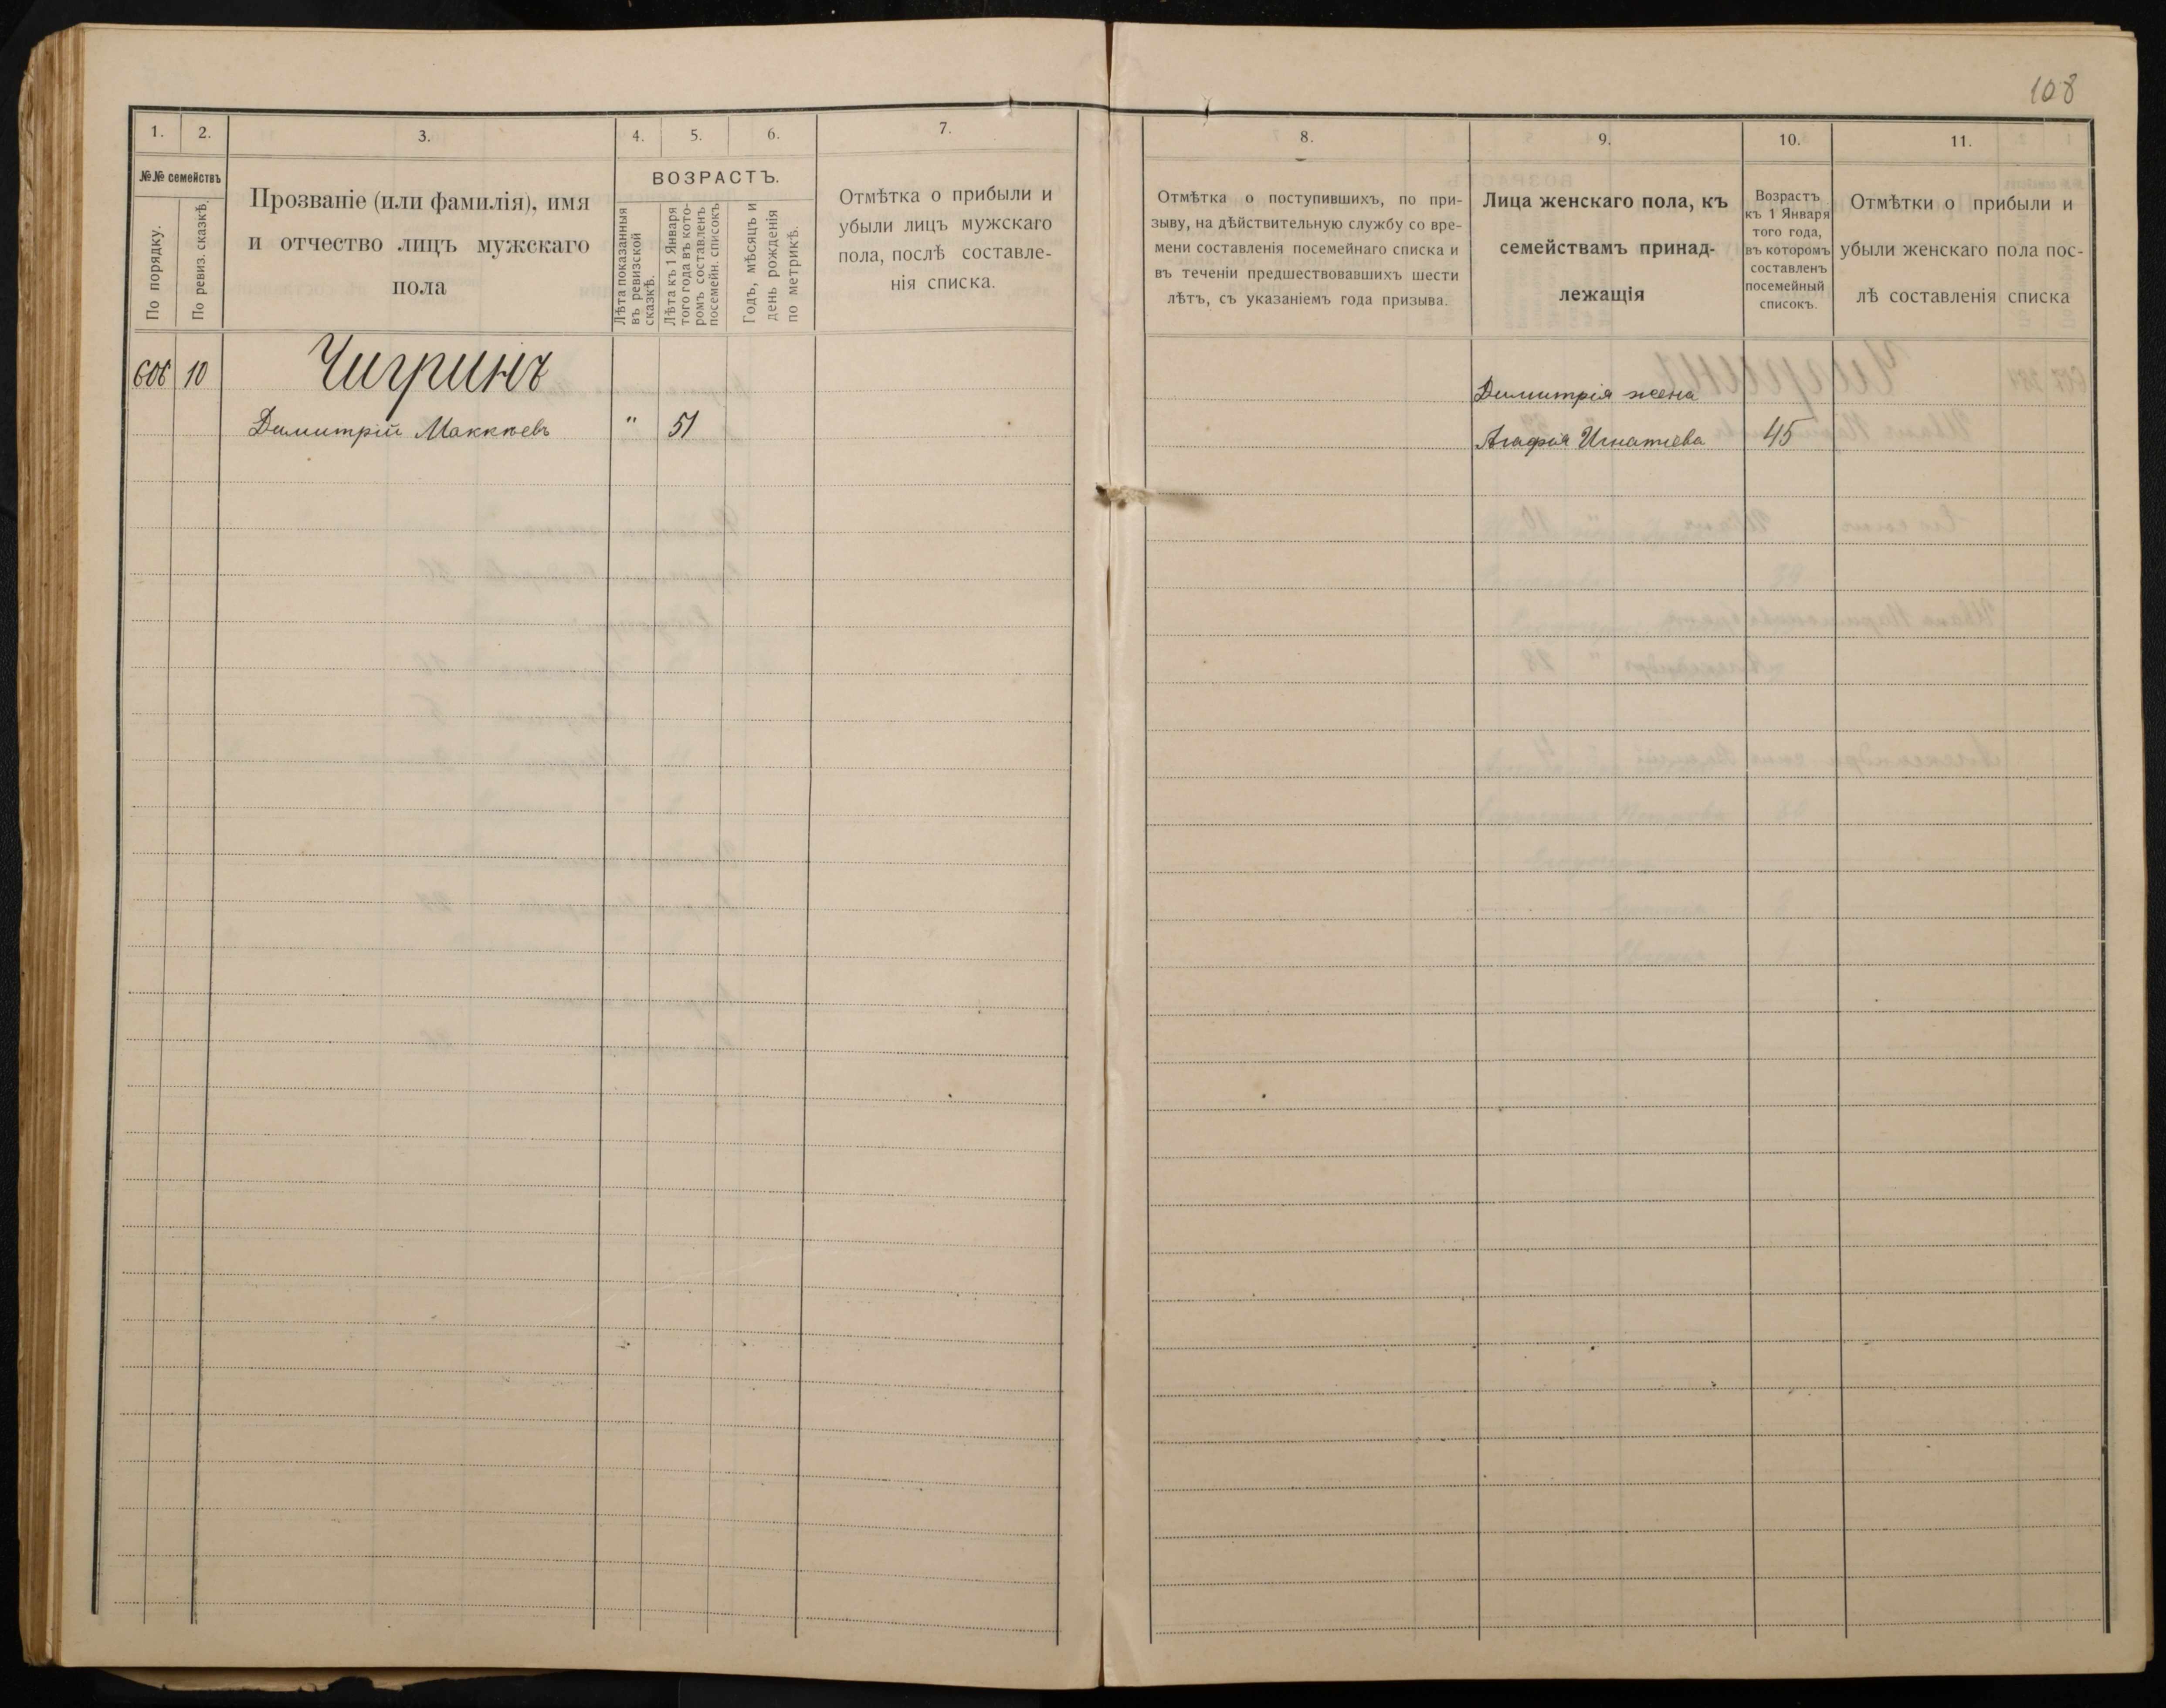 108
1.
2.
3.
4.
5.
6.
7.
№№ семействъ
По порядку.
По ревиз. сказкѣ.
Прозваніе (или фамилія), имя
и отчество лицъ мужскаго
пола
ВОЗРАСТЪ.
Лѣта показанныя
въ ревизской
сказкѣ.
Лѣта къ 1 Января
того года въ кото-
ромъ составленъ
посемейн. списокъ
Годъ, мѣсяцъ и
день рожденія
по метрикѣ.
Отмѣтка о прибыли и
убыли лицъ мужскаго
пола, послѣ составле-
нія списка.
606 10 Чигринъ
Димитрій Маккѣевъ " 51
8.
9.
10.
11.
Отмѣтка о поступившихъ, по при-
зыву, на дѣйствительную службу со вре-
мени составленія посемейнаго списка и
въ теченіи предшествовавшихъ шести
лѣтъ, съ указаніемъ года призыва.
Лица женскаго пола, къ
семействамъ принад-
лежащія
Возрастъ
къ 1 Января
того года,
въ которомъ
составленъ
посемейный
списокъ.
Отмѣтки о прибыли и
убыли женскаго пола пос-
лѣ составленія списка
Димитрія жена
Агафія Игнатіева 45